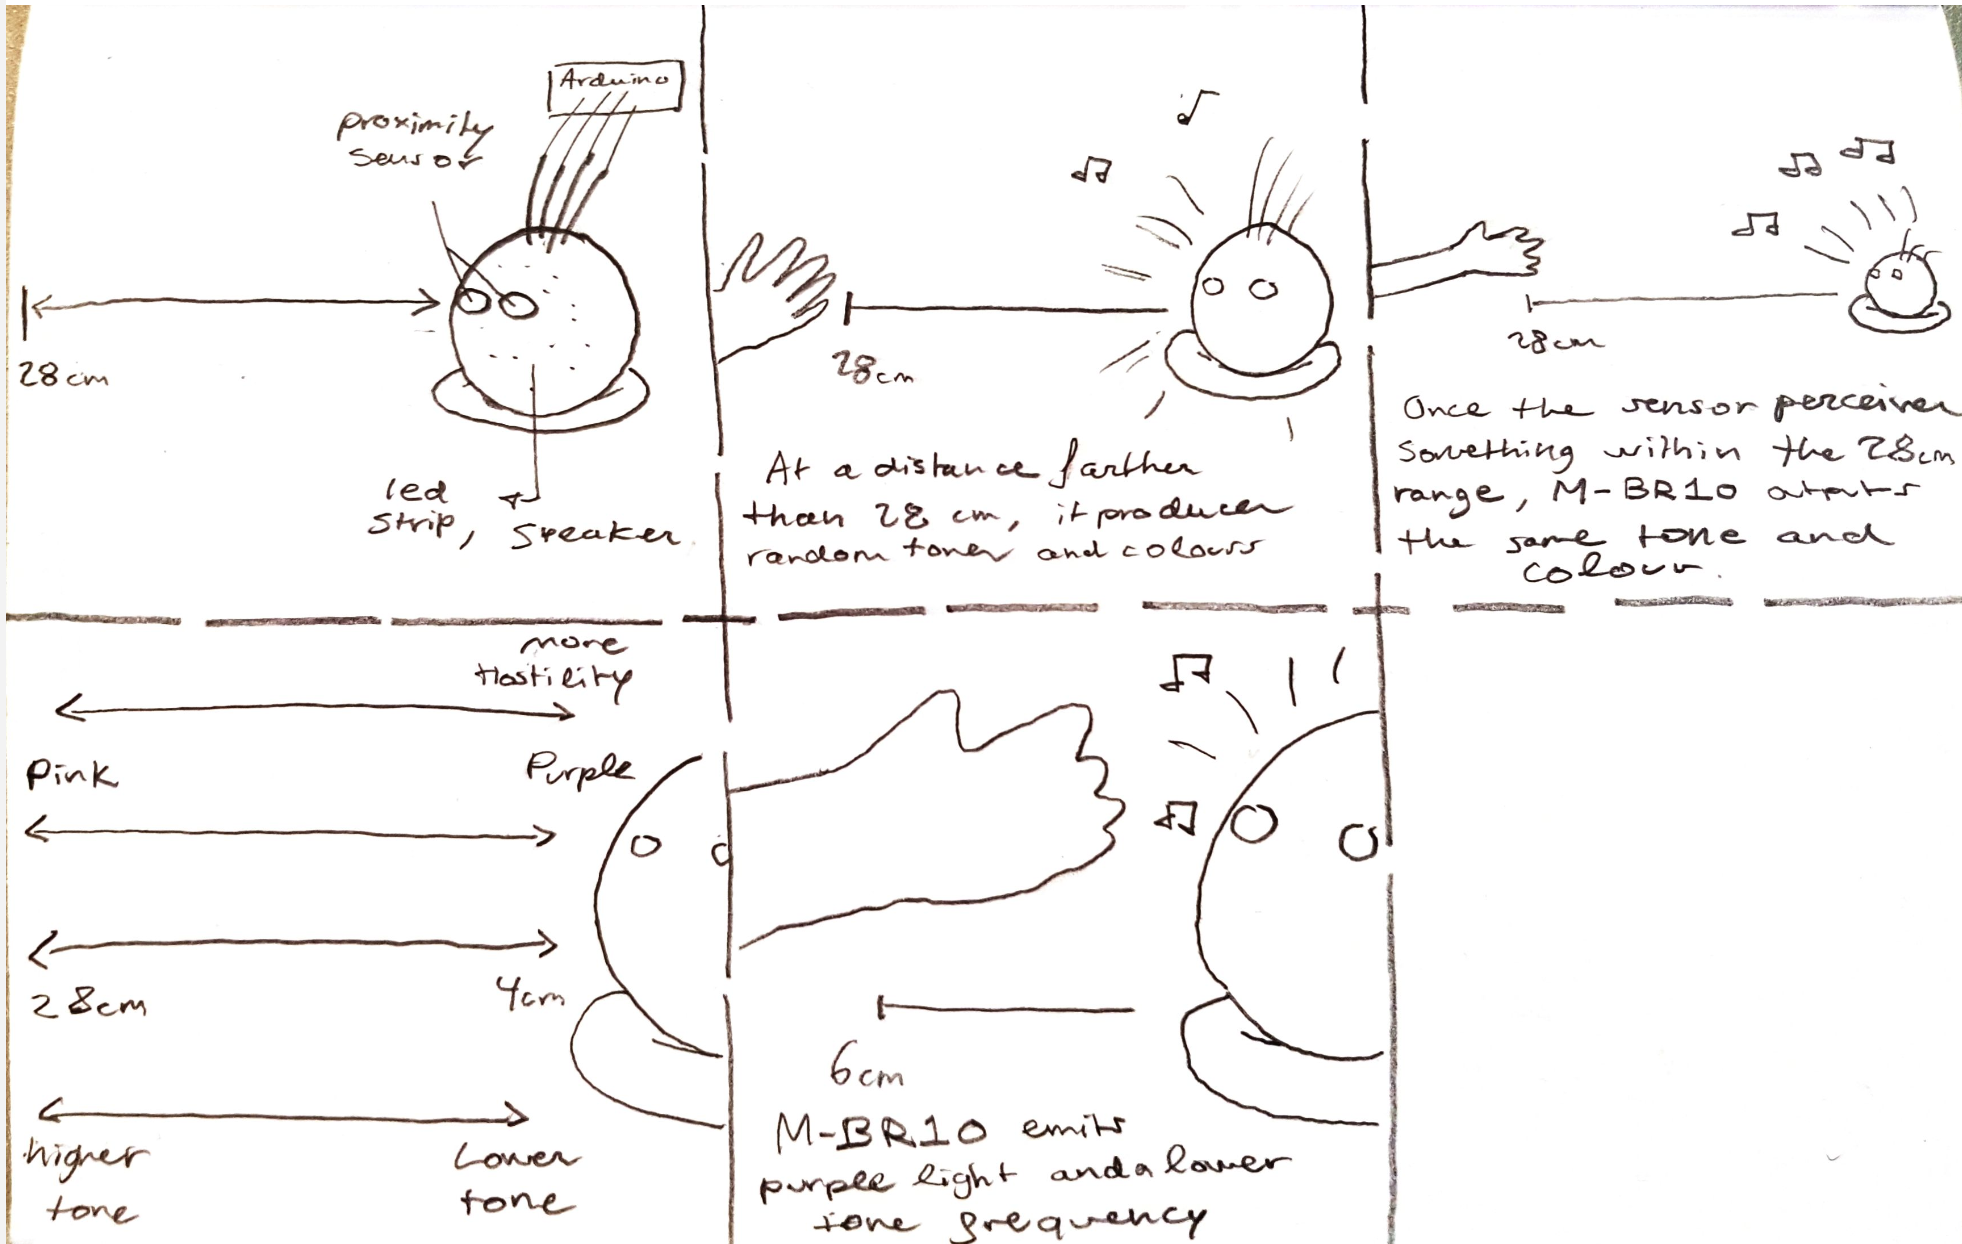 Arduino
proximity
sensor
28cm
led
strip, speaker
28cm
At a distance farther
than 28 cm, it produces
random tones and colours
28cm
Once the sensor perceives
something within the 28cm
range, M-BR10 outputs
the same tone and
colour.
more
Hostility
Pink
Purple
28cm
4cm
higher
tone
Lower
tone
6cm
M-BR10 emits
purple light and a lower
tone frequency